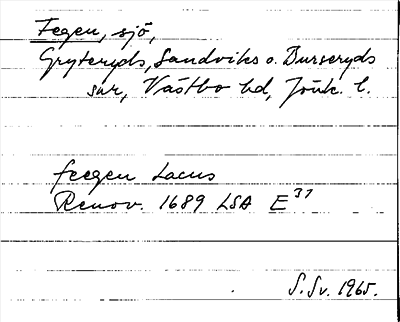 Fegen, sjö,
Gryteryds, Sandviks o. Burseryds
snr, Västbo hd, Jönk. l.
feegen Lacus
Renov. 1689 LSA E 37
S. Sv. 1965.